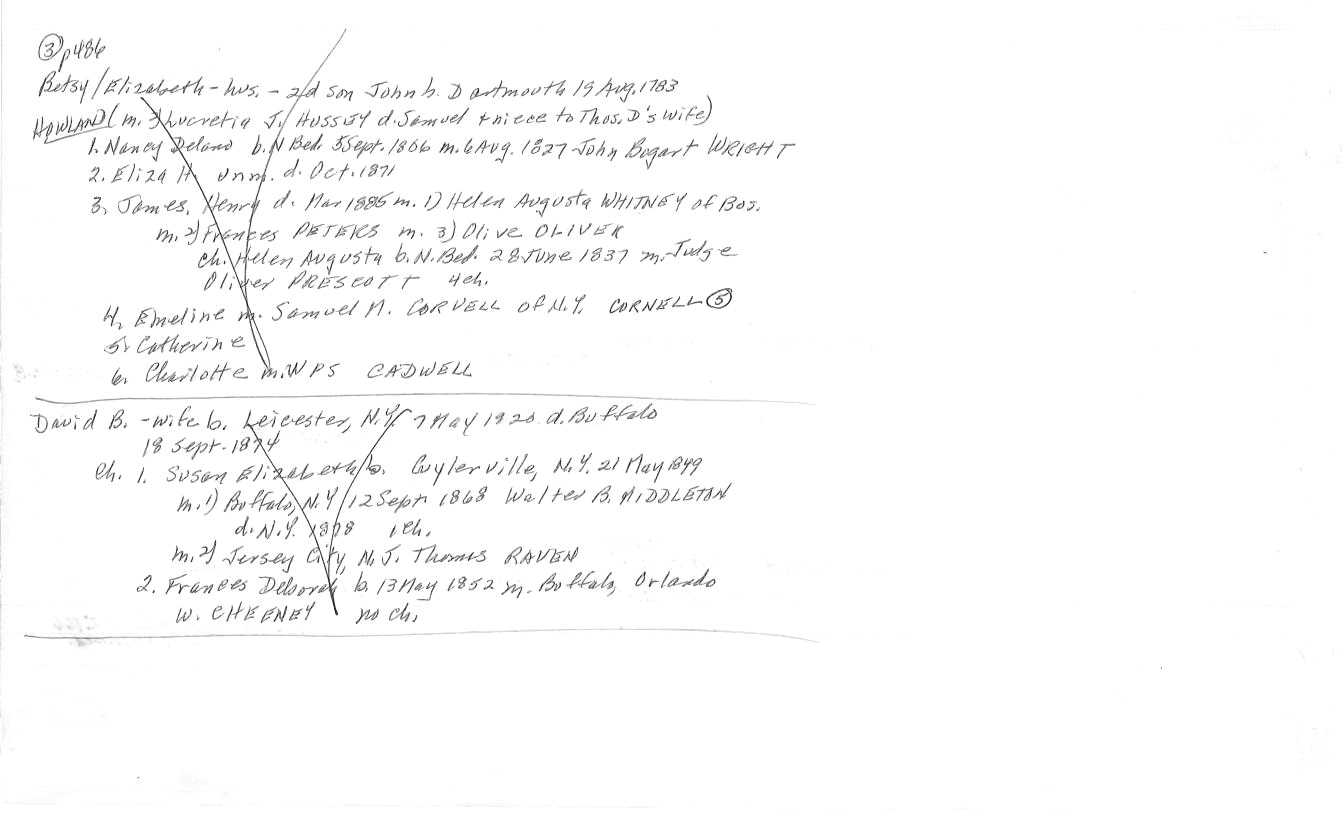 ③ p486
Betsy/Elizabeth - hus. - 2d son John b. Dartmouth 19 Aug. 1783
HOWLAND (m. 3) Lucretia J. HUSSEY d. Samuel + niece to Thos. D's wife)
1. Nancy Delano b. N Bed. 5 Sept. 1806 m. 6 Aug. 1827 John Bogart WRIGHT
2. Eliza H. unm. d. Oct. 1871
3. James, Henry d. Mar 1885 m. 1) Helen Augusta WHITNEY of Bos.
m. 2) Frances PETERS m. 3) Olive OLIVER
ch. Helen Augusta b. N. Bed. 28 June 1837 m. Judge
Oliver PRESCOTT 4 ch.
4. Emeline m. Samuel N. CORVELL of N.Y. CORNELL ⑤
5. Catherine
6. Charlotte m. WPS CADWELL
David B. - wife b. Leicester, N.Y. 7 May 1820 d. Buffalo
18 Sept. 1894
Ch. 1. Susan Elizabeth b. Cuylerville, N.Y. 21 May 1849
m. 1) Buffalo, N.Y. 12 Sept. 1868 Walter B. MIDDLETON
d. N.Y. 1898 1 ch.
m. 2) Jersey City, N.J. Thomas RAVEN
2. Frances Deborah b. 13 May 1852 m. Buffalo, Orlando
W. CHEENEY no ch.